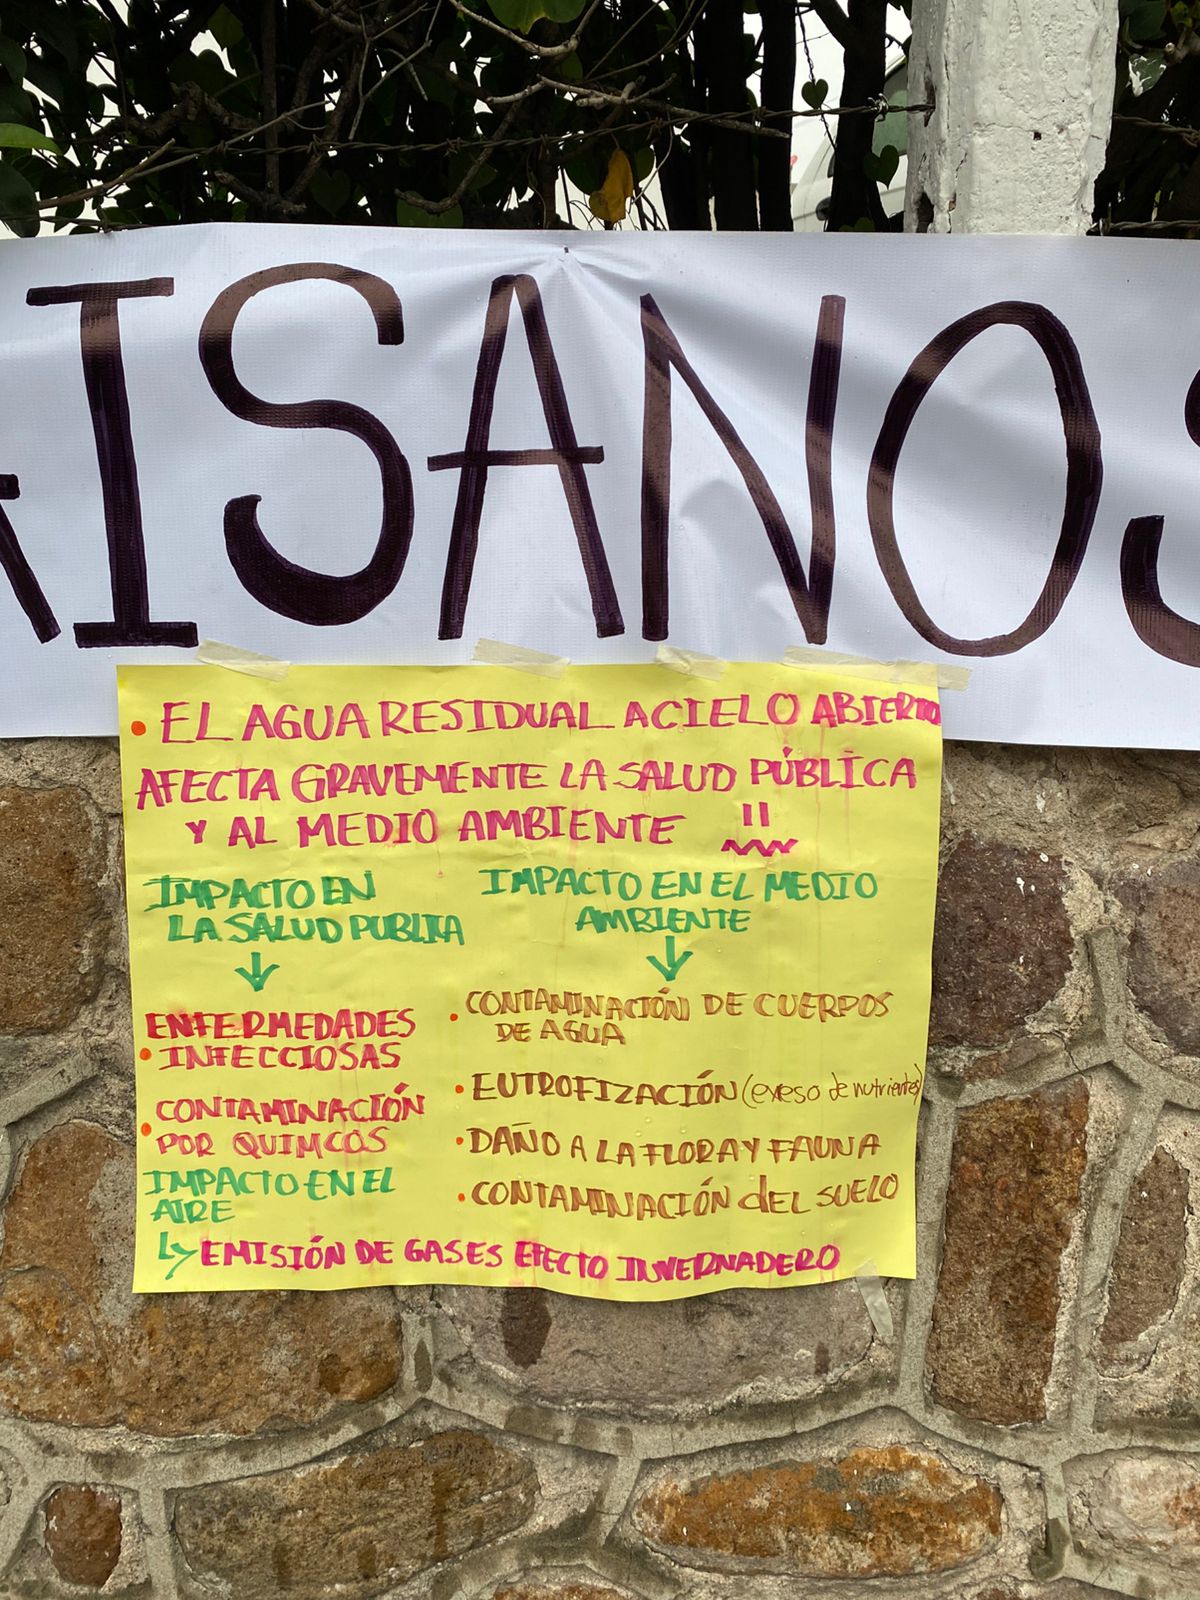 RISANOS
• EL AGUA RESIDUAL A CIELO ABIERTO
AFECTA GRAVEMENTE LA SALUD PÚBLICA
Y AL MEDIO AMBIENTE
IMPACTO EN
LA SALUD PUBLICA
↓
ENFERMEDADES
• INFECCIOSAS
• CONTAMINACIÓN
POR QUIMCOS
IMPACTO EN EL MEDIO
AMBIENTE
↓
• CONTAMINACIÓN DE CUERPOS
DE AGUA
• EUTROFIZACIÓN (exeso de nutrientes)
• DAÑO A LA FLORA Y FAUNA
• CONTAMINACIÓN dEL SUELO
IMPACTO EN EL
AIRE
↳ EMISIÓN DE GASES EFECTO INVERNADERO